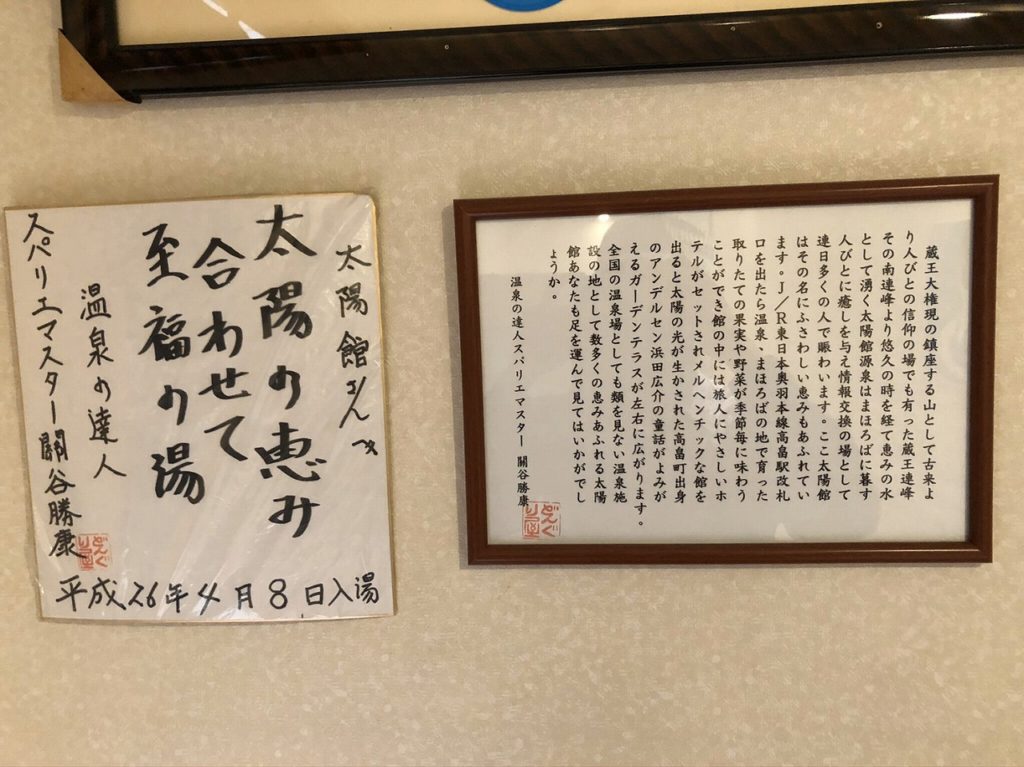 太陽館さんへ
太陽の恵み
合わせて
至福の湯
温泉の達人
スパリエマスター 關谷勝康
平成26年4月8日入湯
蔵王大権現の鎮座する山として古来よ
り人びとの信仰の場でも有った蔵王連峰
その南連峰より悠久の時を経て恵みの水
として湧く太陽館源泉はまほろばに暮す
人びとに癒しを与え情報交換の場として
連日多くの人で賑わいます。ここ太陽館
はその名にふさわしい恵みもあふれてい
ます。J/R東日本奥羽本線高畠駅改札
口を出たら温泉、まほろばの地で育った
取りたての果実や野菜が季節毎に味わう
ことができ館の中には旅人にやさしいホ
テルがセットされメルヘンチックな館を
出ると太陽の光が生かされた高畠町出身
のアンデルセン浜田広介の童話がよみが
えるガーデンテラスが左右に広がります。
全国の温泉場としても類を見ない温泉施
設の地として数多くの恵みあふれる太陽
館あなたも足を運んで見てはいかがでし
ょうか。
温泉の達人スパリエマスター 關谷勝康